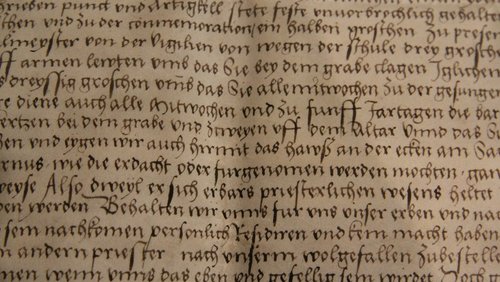 rieben punct und Artigkell stete feste unvorbrochlich gehalten
schen und zu der commemoration ein halben groschen Zu presen
lmeyster von der vigilien von wegen der schule drey grosche
ff armen lewten vnns das Sie bey dem grabe clagen Iglichen
s dreyssig groschen vnns das Sie alle mitwochen zu der gesungen
re diene auch alle Mitwochen und zu funff Jartagen die bar
ertzen bei dem grabe und zweyen uff dem altar Vnnd das S
hen und eygen wir auch hirmit das hawß an der ecken am Sa
rnus wie die erdacht oder furgenomen werden mochten gan
weyse Also dweyl er sich erbars priesterlichen wesens heltet
den werden Behalten wir vnns fur vns unser erben und nac
sem nachkomen personlich Residiren und kein macht haben
n andern priester nach unserm wolgefallen Zubestelle
nen wenn vnns das eben und gefellig sein wirdet Doch g